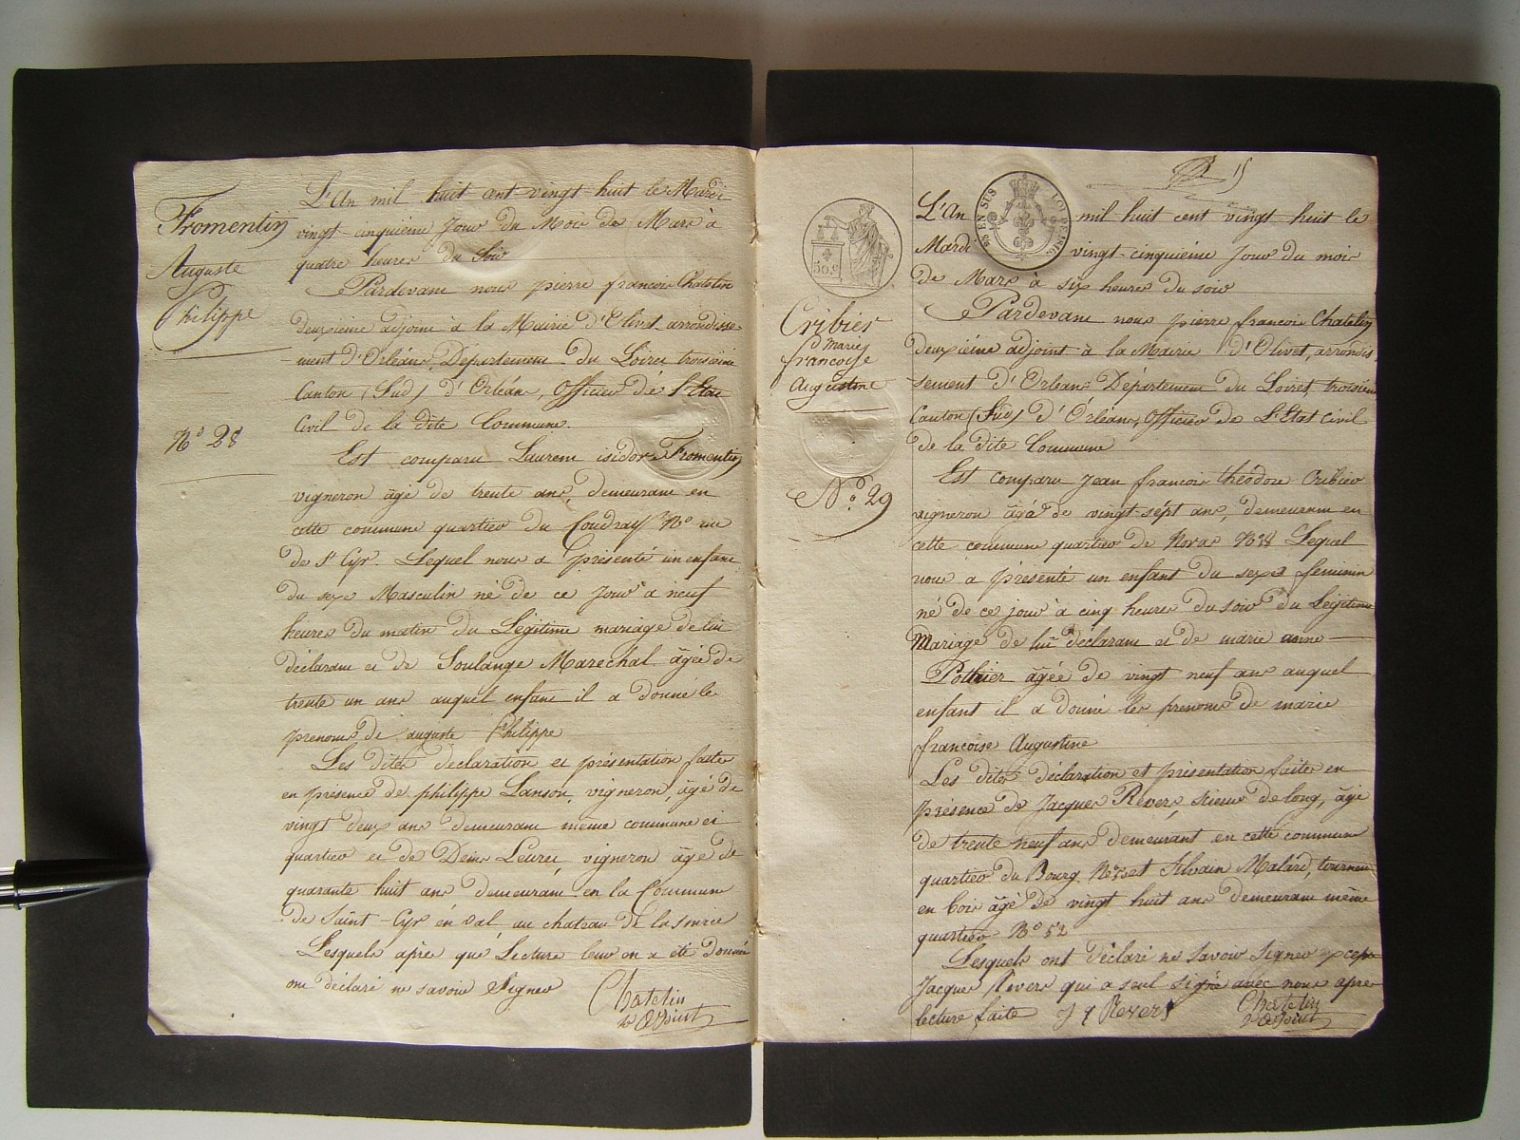 Fromentin
Auguste
Philippe
N° 28
L'An mil huit cent vingt huit le Mardi
vingt cinquième Jour du Mois de Mars à
quatre heures du Soir
Pardevant nous pierre francois Chatelin
deuxième adjoint à la Mairie d'Olivet arrondisse-
-ment d'Orléans, Département du Loiret troisieme
Canton (Sud) d'Orléans, Officier de l'Etat
Civil de la dite Commune.
Est comparu Laurent isidore Fromentin
vigneron âgé de trente ans, demeurant en
cette commune quartier du Coudray N° un
de St Cyr. Lequel nous a présenté un enfant
du sexe Masculin né de ce Jour à neuf
heures du matin du Légitime mariage de lui
déclarant et de Soulange Marechal âgée de
trente un ans auquel enfant il a donné le
prenoms de auguste Philippe
Les dites declaration et présentation faites
en présence de philippe Lanson, vigneron, âgé de
vingt deux ans demeurant même commune et
quartier et de Denis Leuret, vigneron âgé de
quarante huit ans demeurant en la Commune
de Saint-Cyr en val, au chateau de la source
Lesquels après que Lecture leur en a été donné
ont déclaré ne savoir Signer
Chatelin
2e adjoint
15
EN SUS
50 c
Cribier
Marie
francoise
Augustine
N°. 29
L'An mil huit cent vingt huit le
Mardi vingt-cinquième Jour du mois
de Mars à six heures du soir
Pardevant nous pierre francois Chatelin
deuxième adjoint à la Mairie d'Olivet, arrondis-
sement d'Orleans Département du Loiret, troisieme
Canton (Sud) d'Orléans, Officier de L'Etat Civil
de la dite Commune
Est comparu Jean francois theodore Cribier
vigneron âgé de vingt-sept ans, demeurant en
cette commune quartier de Noras N° Lequel
nous a présenté un enfant du sexe feminin
né de ce jour à cinq heures du soir du Légitime
Mariage de lui déclarant et de marie anne
Pothier âgée de vingt neuf ans auquel
enfant il a donné les prenoms de marie
francoise Augustine
Les dites déclaration et présentation faites en
présence de Jacques Revers, scieur de long, âgé
de trente neuf ans demeurant en cette commune
quartier du Bourg N° et Silvain Malard, tourneur
en bois âgé de vingt huit ans demeurant même
quartier N° 52
Lesquels ont déclaré ne savoir Signer excepté
Jacques Revers qui a seul signé avec nous après
lecture faite J q Revers
Chatelin
2e adjoint